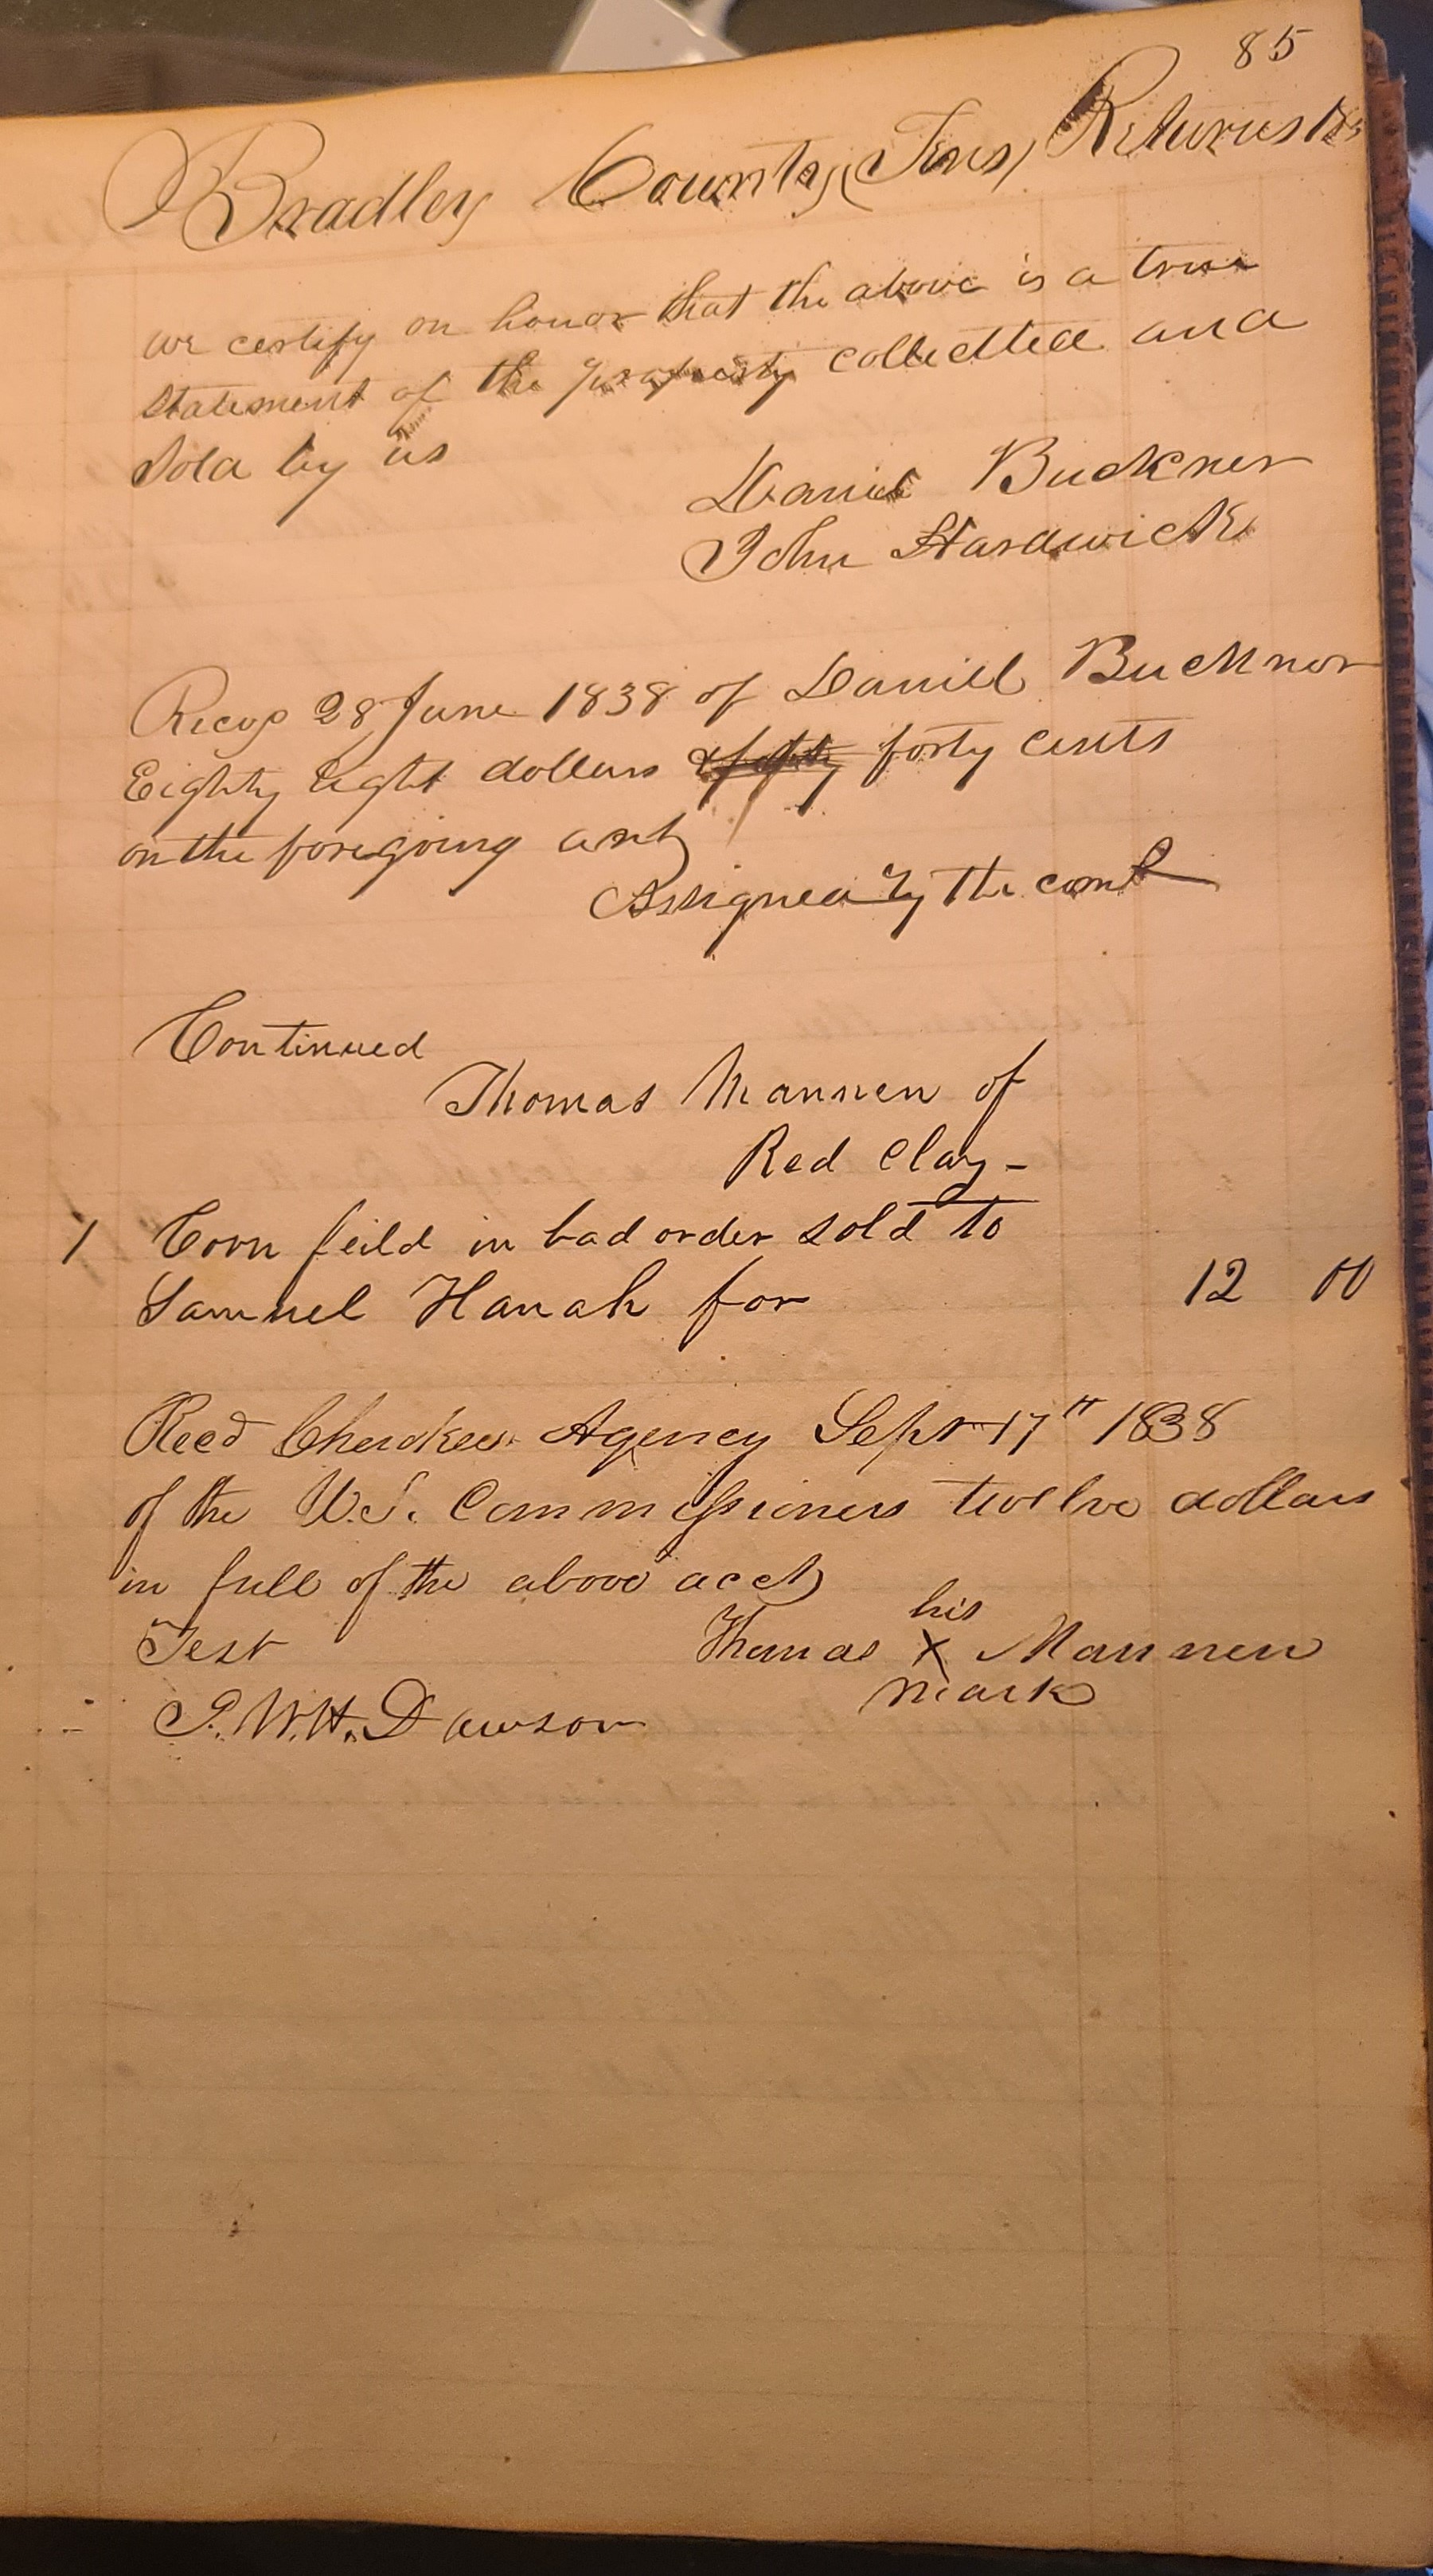 85
Bradley County (Tens) Returns 183
we certify on honor that the above is a true
Statement of the property collectted and
Sold by us
Daniel Buckner
John Hardwick
28 June 1838 of Daniel Bucknor
Eighty Eight dollars forty cents
on the foregoing
Assigned by the
Continued
Thomas Mannen of
Red Clay -
1 Corn feild in bad order sold to
Samuel Hanah for 12 00
Recd Cherokee Agency Sept 17th 1838
of the U.S. Commissioners twelve dollars
in full of the above acct
his
Test Thomas X Mannen
mark
W.H. Dawson